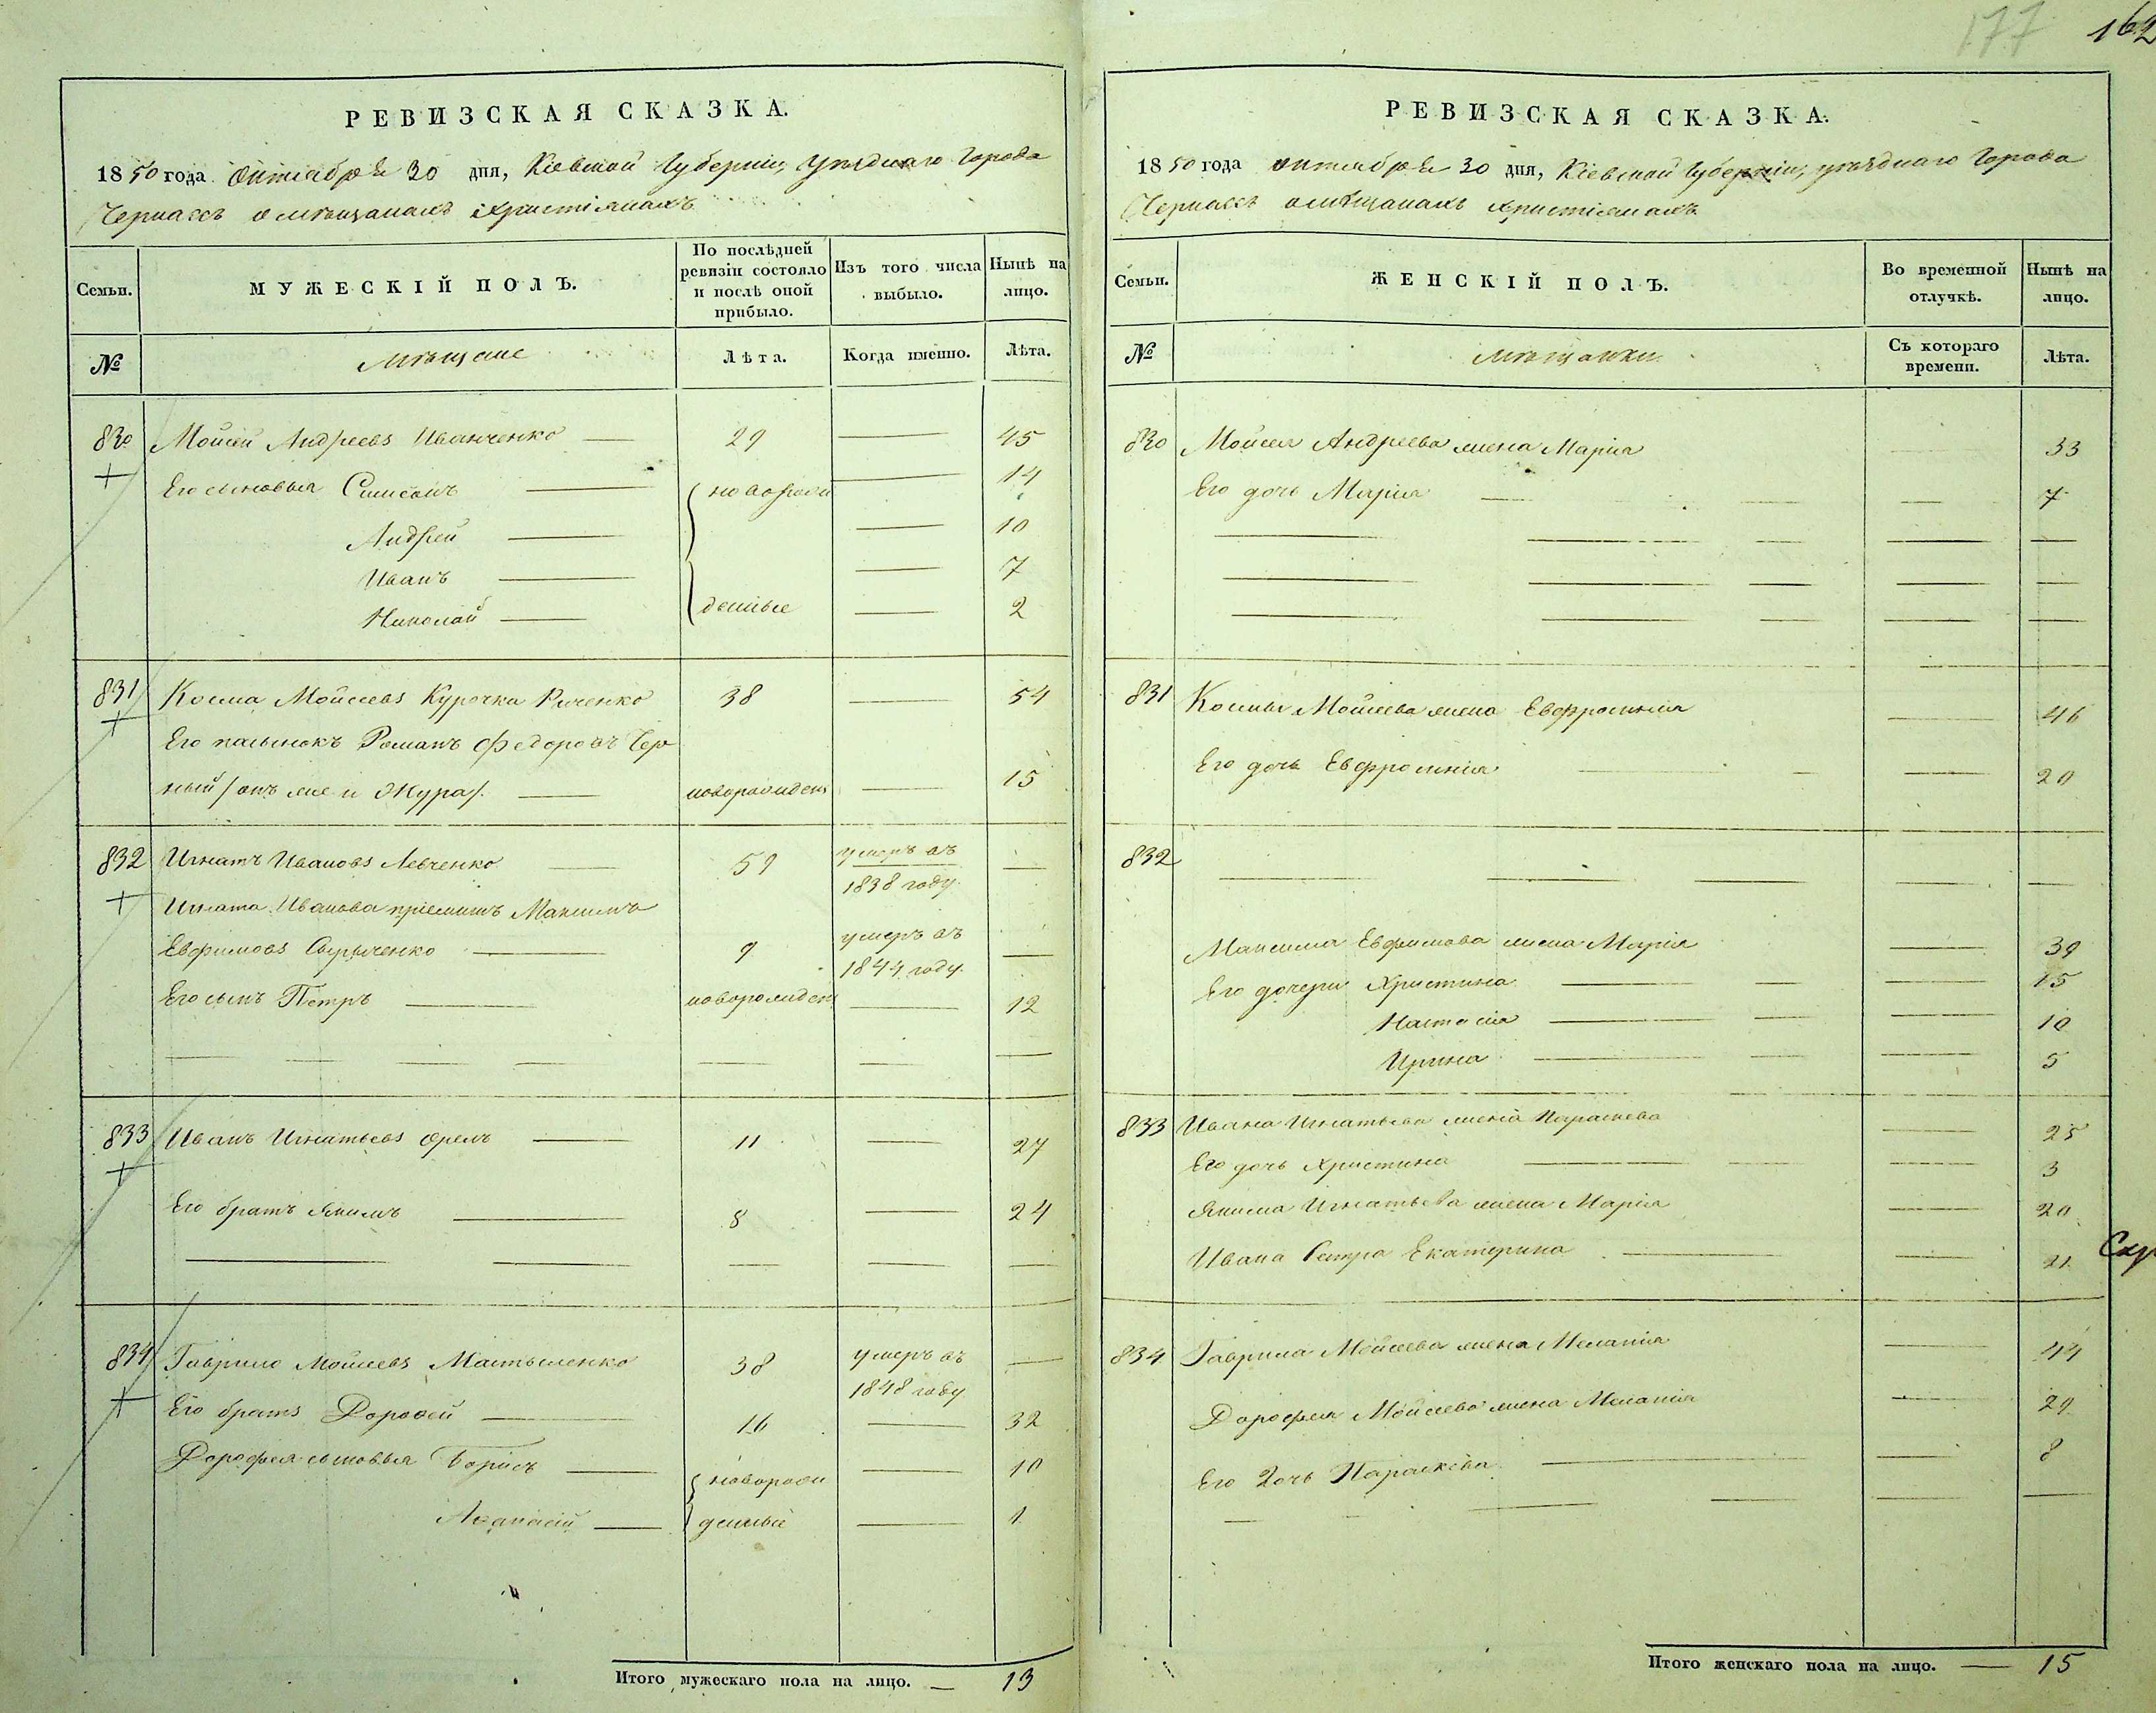 177 162
РЕВИЗСКАЯ СКАЗКА.
1850 года Октября 30 дня, Кіевской Губерніи, уѣзднаго Города
Черкассъ о мѣщанахъ христіянахъ
Семьи.
МУЖЕСКІЙ ПОЛЪ.
По послѣдней ревизіи состояло и послѣ оной прибыло.
Изъ того числа выбыло.
Нынѣ на лицо.
№
Мѣщане
Лѣта.
Когда именно.
Лѣта.
830 Мойсей Андреевъ Иванченко — 29 — 45
Его сыновья Симеонъ — новорож — 14
Андрей — — 10
Иванъ — — 7
Николай — денные — 2
831 Косма Мойсеевъ Курочка 38 — 54
Его пасынокъ Романъ Федоровъ Чер
ный /онъ же и Жура/. — новорожденъ — 15
832 Игнатъ Ивановъ Левченко — 59 умеръ въ 1838 году —
Игната Иванова пріемышъ Максимъ
Евфимовъ — 9 умеръ въ 1844 году. —
Его сынъ Петръ — новорожден — 12
833 Иванъ Игнатьевъ Орелъ — 11 — 27
Его братъ Якимъ — 8 — 24
834 Гаврило Мойсеевъ 38 умеръ въ 1848 году —
Его братъ Дорофей — 16 — 32
Дорофея сыновья Борисъ — новорож — 10
Афанасій — денные — 1
Итого мужескаго пола на лицо. — 13
РЕВИЗСКАЯ СКАЗКА.
1850 года октября 30 дня, Кіевской Губерніи, уѣзднаго Города
Черкассъ о мѣщанахъ христіянахъ
Семьи.
ЖЕНСКІЙ ПОЛЪ.
Во временной отлучкѣ.
Нынѣ на лицо.
№
Мѣщанки
Съ котораго времени.
Лѣта.
830 Мойсея Андреева жена Марія — 33
Его дочь Марія — — 7
831 Космы Мойсеева жена Евфросинія — 46
Его дочь Евфросинія — — 20
832
Максима Евфимова жена Марія — 39
Его дочери Христина — — 15
Настасія — — 10
Ирина — — 5
833 Ивана Игнатьева жена Параскева — 25
Его дочь Христина — — 3
Якима Игнатьева жена Марія — 20
Ивана Сестра Екатерина — — 21
834 Гаврила Мойсеева жена Меланія — 44
Дорофея Мойсеева жена Меланія — 29
Его дочь Параскева — — 8
Итого женскаго пола на лицо. — 15